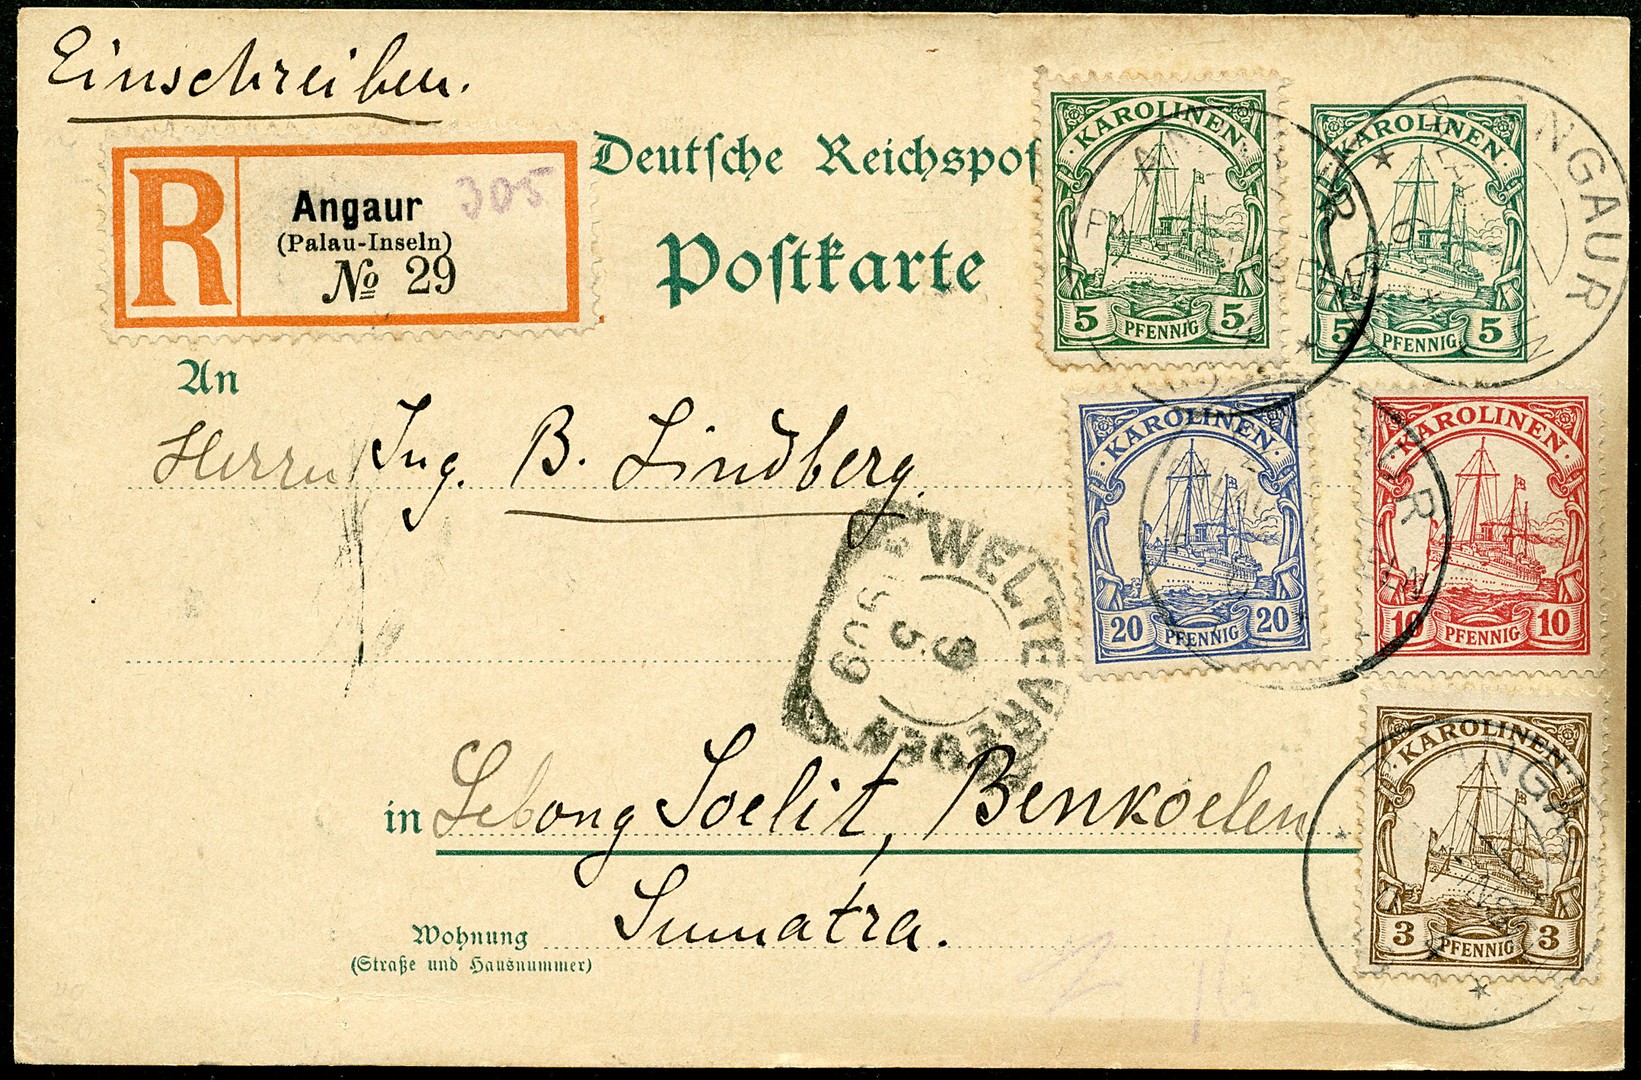 Einschreiben.
Deutsche Reichspos
Postkarte
R
Angaur 305
(Palau-Inseln)
№ 29
KAROLINEN
5 PFENNIG 5
KAROLINEN
5 PFENNIG 5
ANGAUR
An
Herrn Ing. B. Lindberg.
KAROLINEN
20 PFENNIG 20
KAROLINEN
10 PFENNIG 10
WELTEVREDEN
9
5
909
in Lebong Soelit, Benkoelen
Sumatra.
KAROLINEN
3 PFENNIG 3
Wohnung
(Straße und Hausnummer)